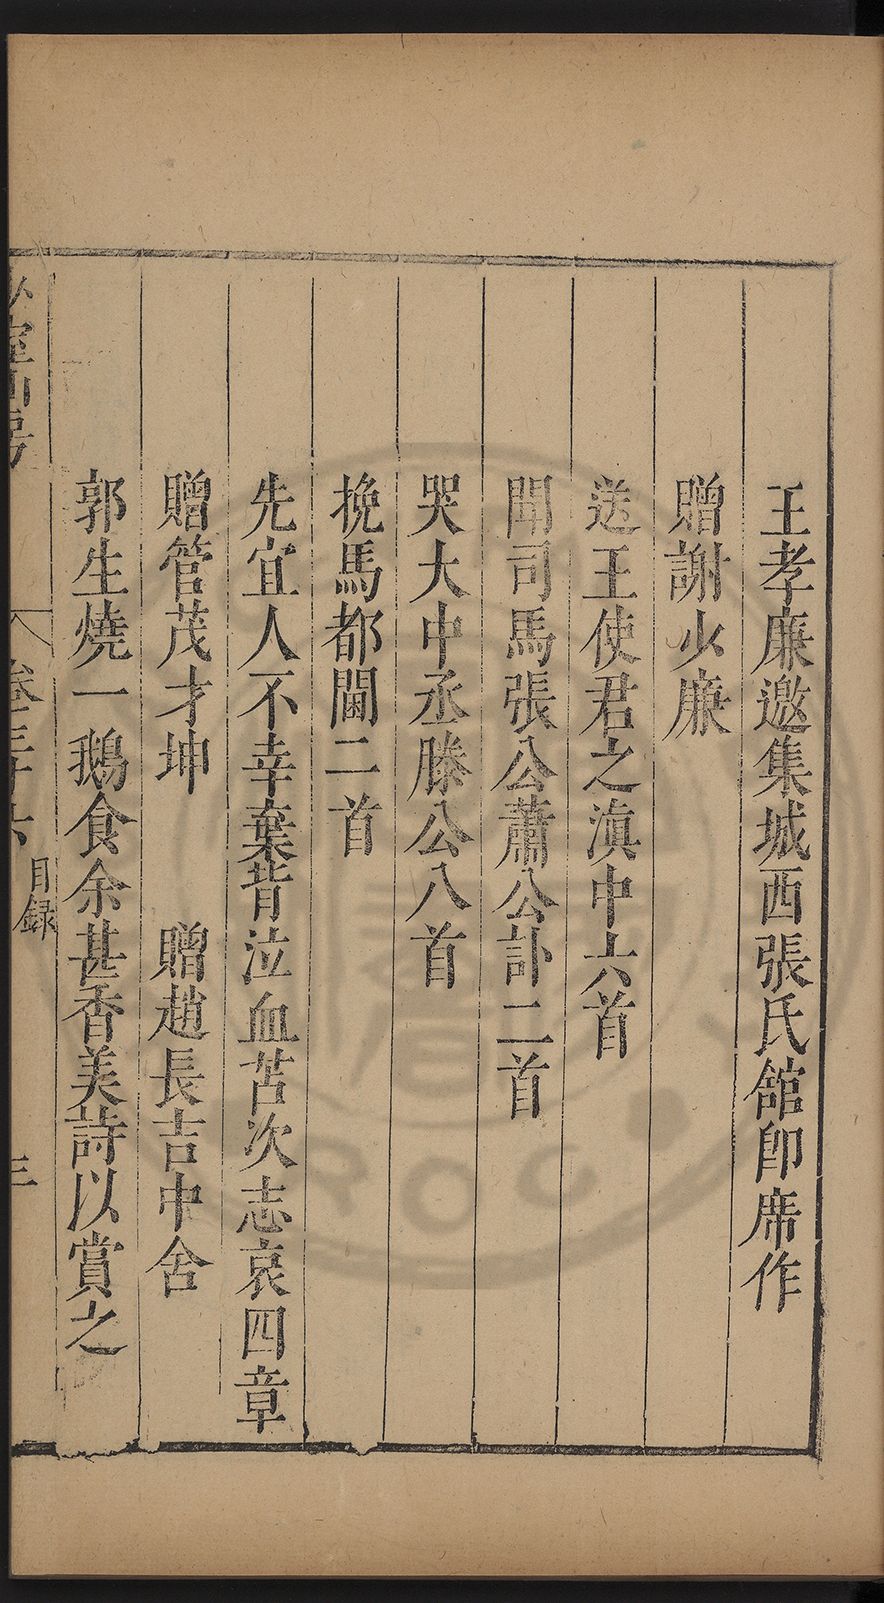 王孝廉邀集城西張氏館卽席作
贈謝少廉
送王使君之滇中六首
聞司馬張公蕭公訃二首
哭大中丞滕公八首
挽馬都閫二首
先宜人不幸棄背泣血苫次志哀四章
贈管茂才坤　贈趙長吉中舍
郭生燒一鵝食余甚香美詩以賞之
少室山房　卷三十六　目録　三